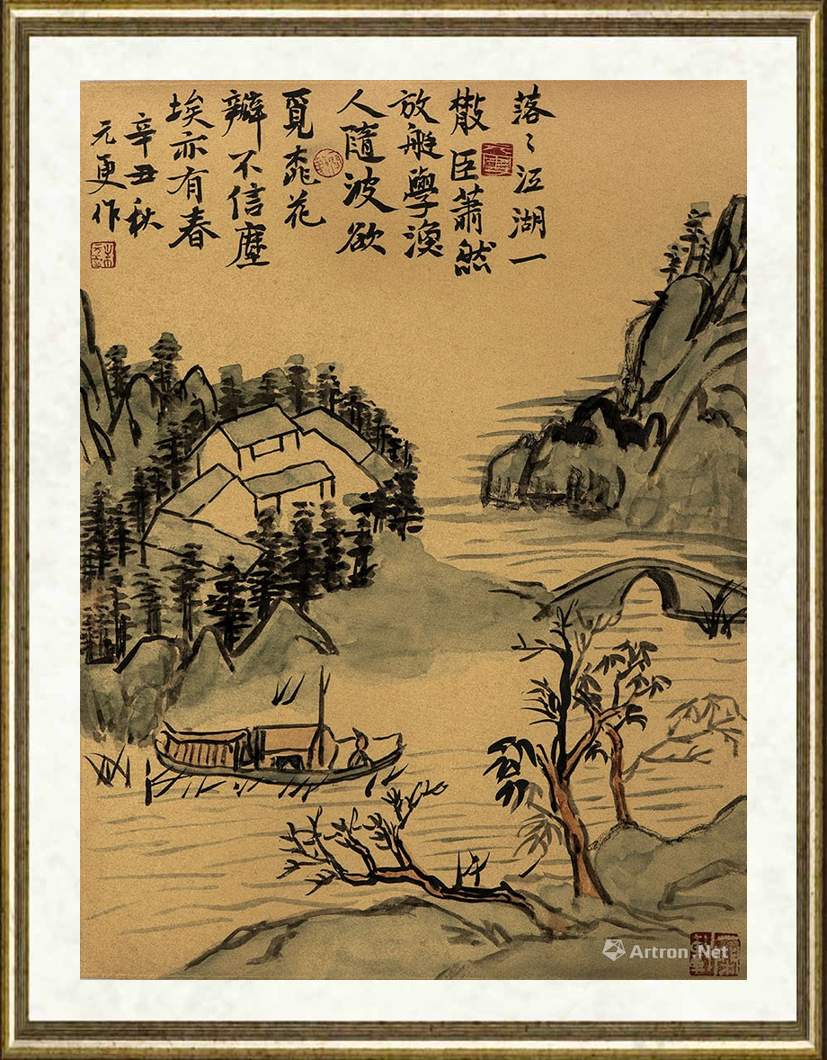 落〻江湖一
散臣蕭然
放艇學漁
人隨波欲
覓桃花
瓣不信塵
埃亦有春
辛丑秋
元更作
Artron.Net